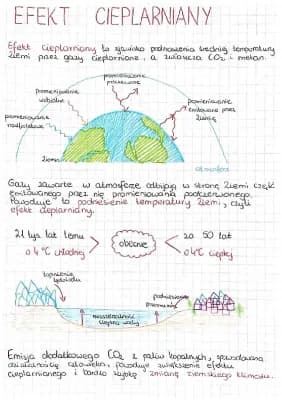 EFEKT CIEPLARNIANY
Efekt cieplarniany to zjawisko podnoszenia średniej temperatury
Ziemi przez gazy cieplarniane, a zwłaszcza CO₂ i metan.
promieniowanie
podczerwone
promieniowanie
widzialne
promieniowanie
emitowane przez
Ziemię
promieniowanie
nadfioletowe
Ziemia
atmosfera
Gazy zawarte w atmosferze odbijają w stronę Ziemi część
emitowanego przez nią promieniowania podczerwonego.
Powoduje to podniesienie temperatury Ziemi, czyli
efekt cieplarniany.
21 tys lat temu
o 4°C chłodniej
obecnie
za 50 lat
o 4°C cieplej
topnienie
lodowców
rozszerzalność
cieplna wody
podniesienie
poziomu
Emisja dodatkowego CO₂ z paliw kopalnych, spowodowana
działalnością człowieka, powoduje zwiększenie efektu
cieplarnianego i bardzo szybką zmianę ziemskiego klimatu.